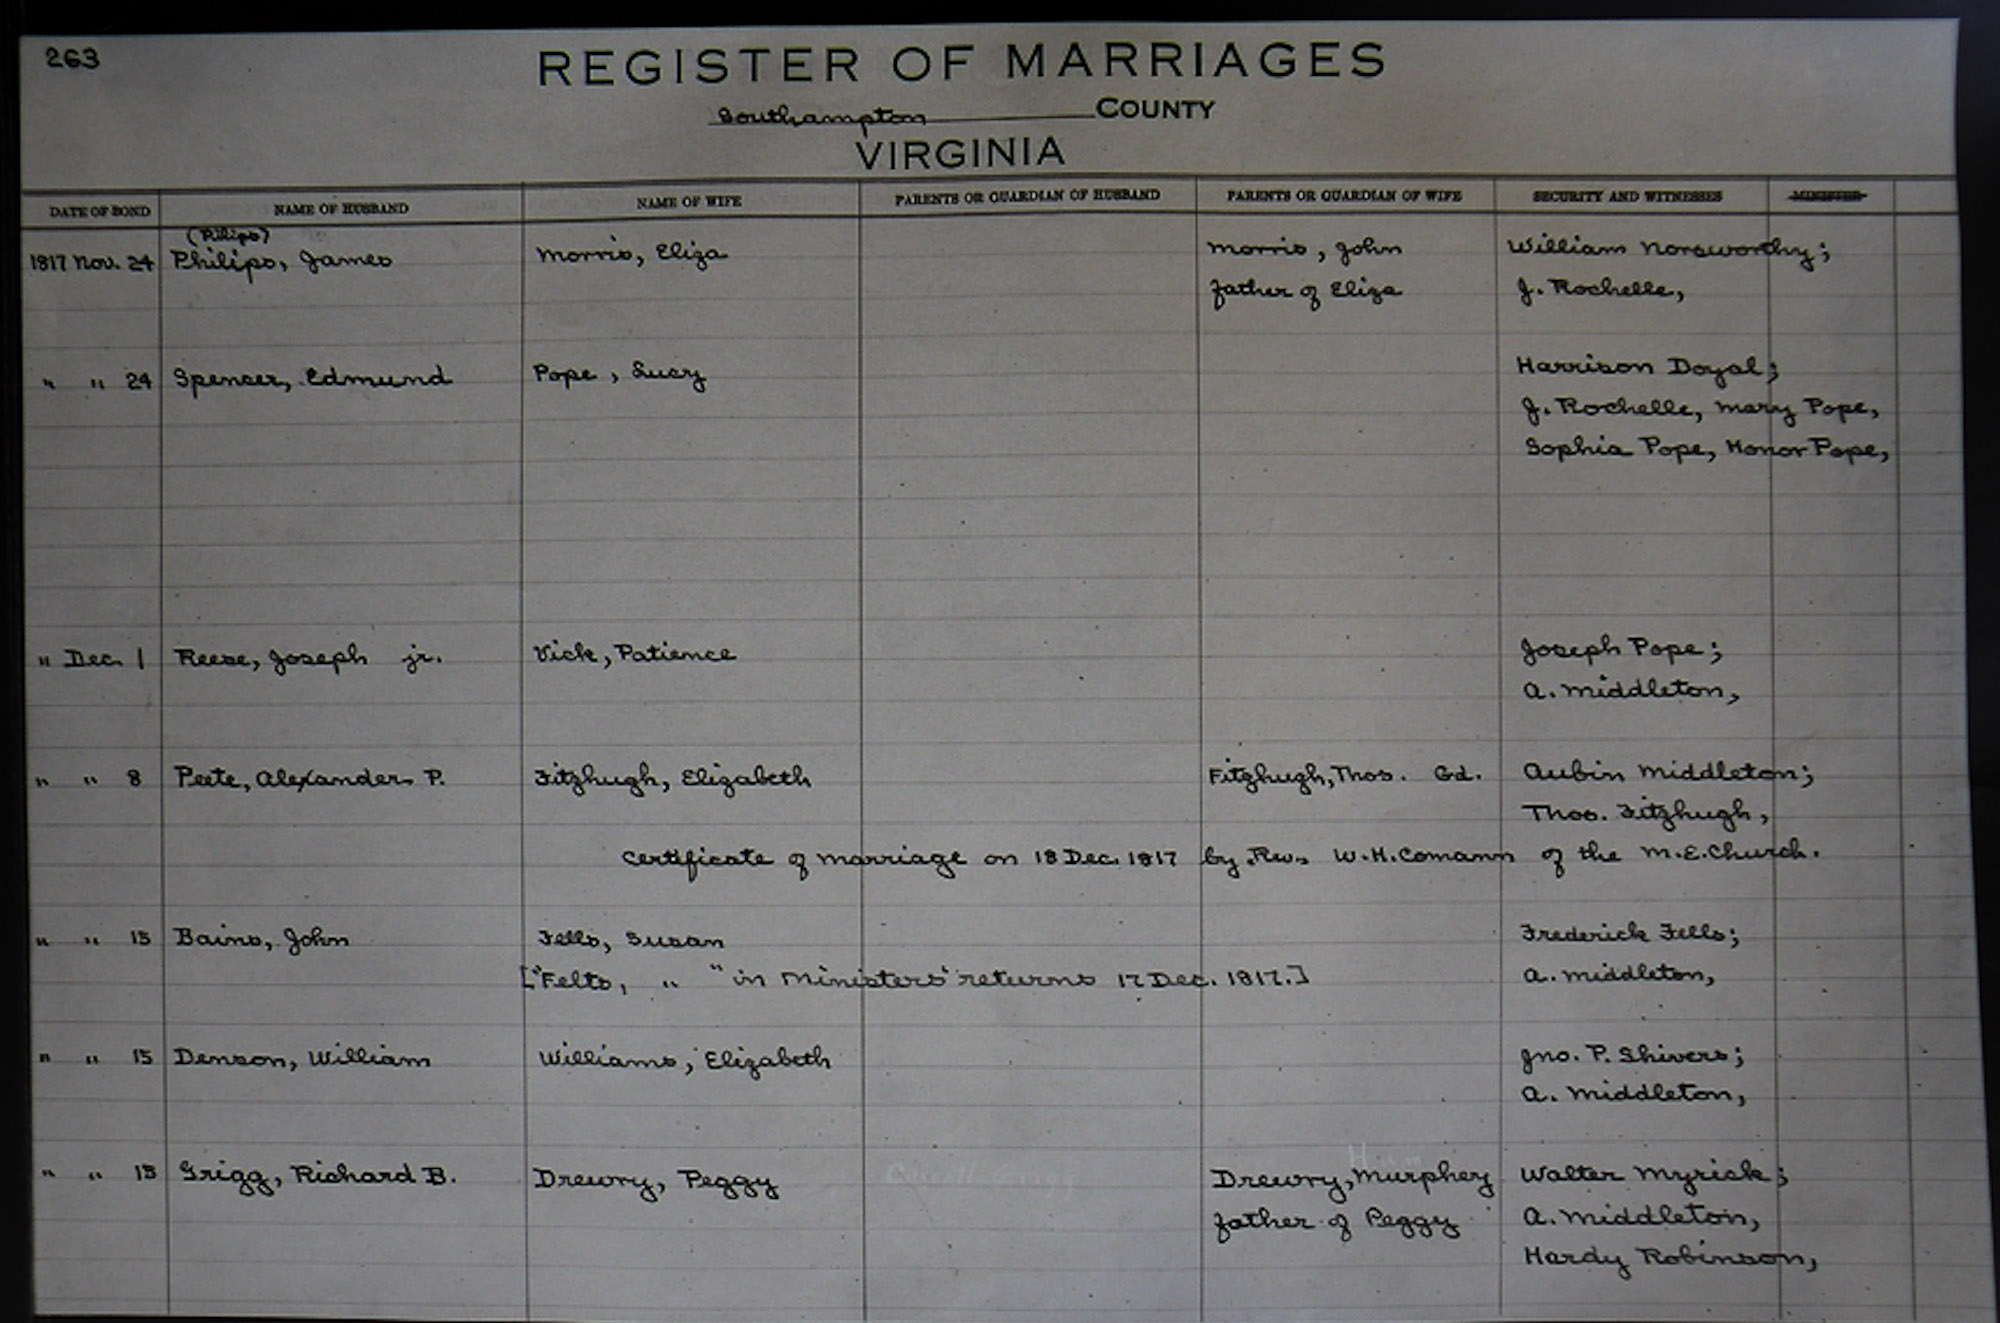 263
REGISTER OF MARRIAGES
Southampton COUNTY
VIRGINIA
DATE OF BOND NAME OF HUSBAND NAME OF WIFE PARENTS OR GUARDIAN OF HUSBAND PARENTS OR GUARDIAN OF WIFE SECURITY AND WITNESSES MINISTER
(Philips)
1817 Nov. 24 Philips, James Morris, Eliza Morris, John William Norsworthy;
father of Eliza J. Rochelle,
" " 24 Spencer, Edmund Pope, Lucy Harrison Doyal;
J. Rochelle, Mary Pope,
Sophia Pope, Honor Pope,
" Dec. 1 Reese, Joseph jr. Vick, Patience Joseph Pope;
A. Middleton,
" " 8 Peete, Alexander P. Fitzhugh, Elizabeth Fitzhugh, Thos. Gd. Aubin Middleton;
Thos. Fitzhugh,
Certificate of marriage on 18 Dec. 1817 by Rev. W.H. Comann of the M.E. Church.
" " 15 Bains, John Fells, Susan Frederick Fells;
["Felts, " " in Ministers' returns 17 Dec. 1817.] A. Middleton,
" " 15 Denson, William Williams, Elizabeth Jno. P. Shivers;
A. Middleton,
" " 15 Grigg, Richard B. Drewry, Peggy Drewry, Murphey Walter Myrick;
father of Peggy A. Middleton,
Hardy Robinson,